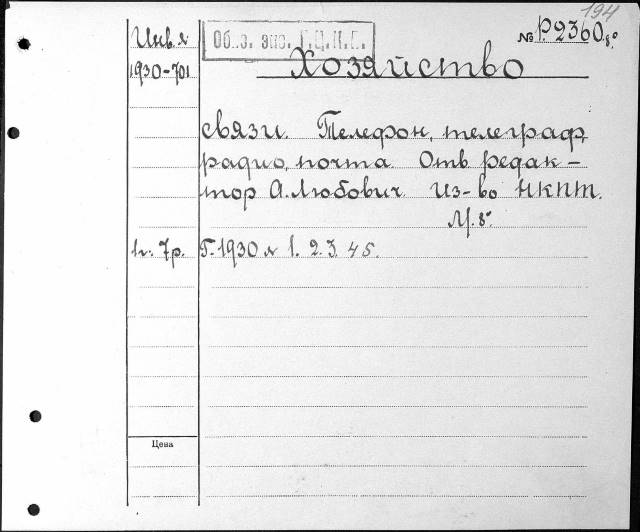 194
Инв. №
Об.з. экз. Г.Ц.К.П.
№ Р.2360 8°
1930-701
Хозяйство
связи. Телефон, телеграф,
радио, почта. Отв. редак-
тор А. Любович. Из-во НКПТ.
М. 8°.
7р.
Г. 1930 № 1. 2. 3. 4 5.
Цена